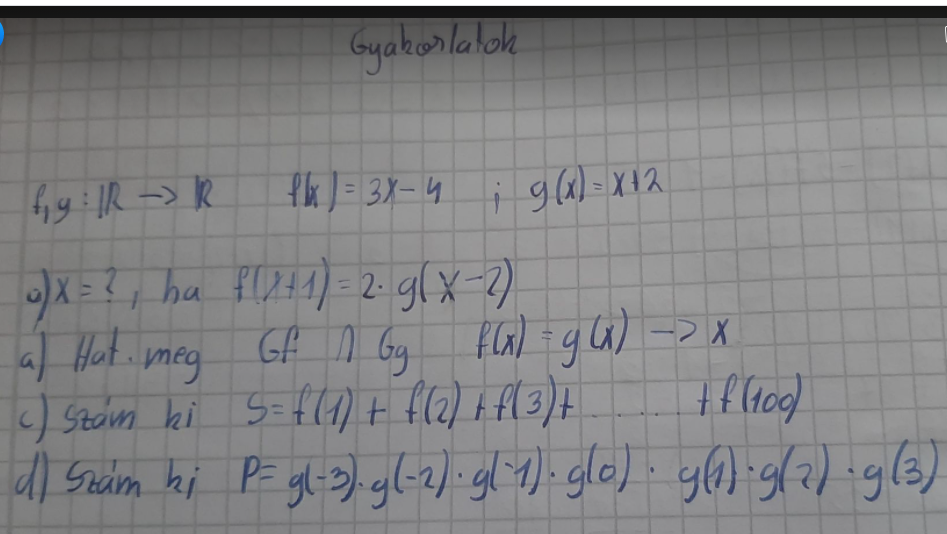 Gyakorlatok
f,g : ℝ → ℝ f(x) = 3x - 4 ; g(x) = x+2
a) x = ?, ha f(x+1) = 2 · g(x-2)
a) Hat. meg Gf ∩ Gg f(x) = g(x) → x
c) Szám ki S = f(1) + f(2) + f(3) + ...... + f(100)
d) Szám ki P = g(-3) · g(-2) · g(-1) · g(0) · g(1) · g(2) · g(3)